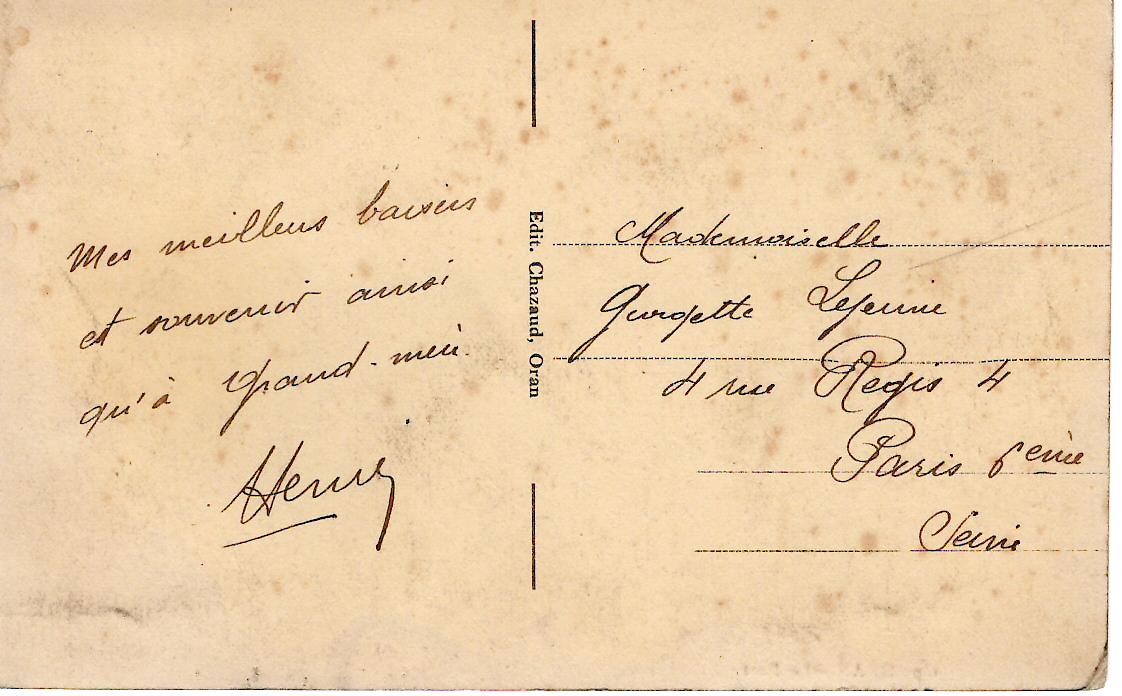 Mes meilleurs baisers
et souvenir ainsi
qu'à Grand-mère.
Henry
Edit. Chazaud, Oran
Mademoiselle
Georgette Lejeune
4 rue Régis 4
Paris 6ème
Seine